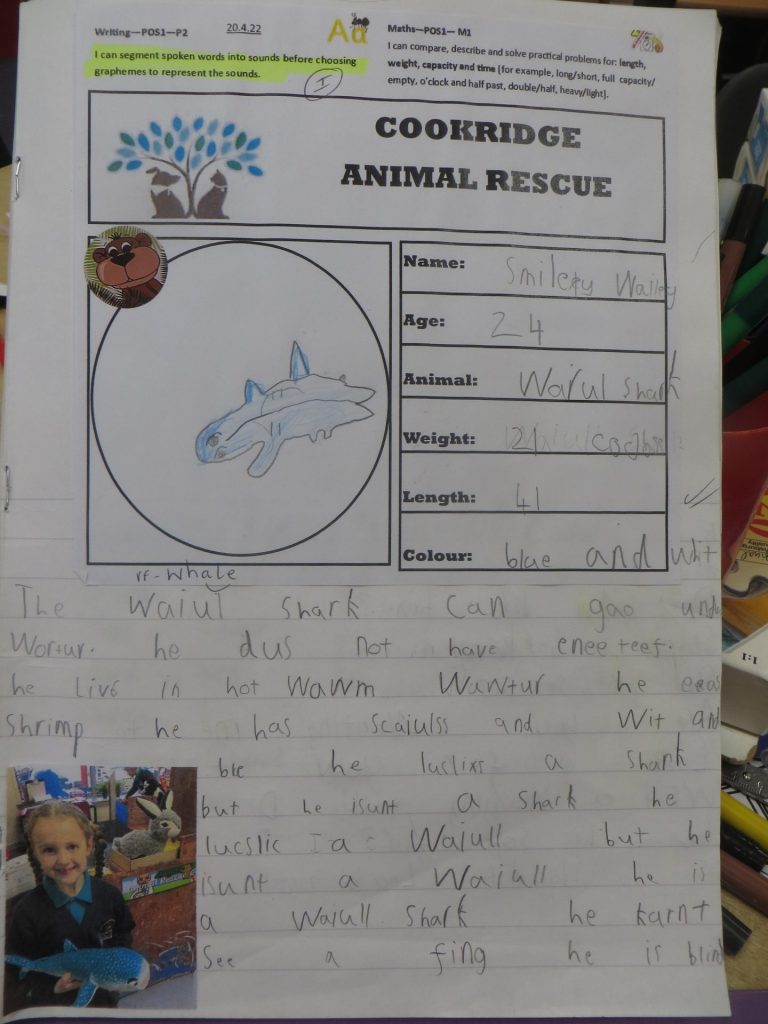 Writing—POS1—P2
20.4.22
Aa
Maths—POS1— M1
I can segment spoken words into sounds before choosing
graphemes to represent the sounds.
I
I can compare, describe and solve practical problems for: length,
weight, capacity and time [for example, long/short, full capacity/
empty, o'clock and half past, double/half, heavy/light].
COOKRIDGE
ANIMAL RESCUE
Name: Smileey Wailey
Age: 24
Animal: Waiul shark
Weight: 21
Length: 41
Colour: blue and whit
rf - whale
The Waiul shark can gao und
Wortur. he dus not have enee teef.
he live in hot Wawm Wawtur he eeas
Shrimp he has scaiulss and Wit and
ble he lucliks a shark
but he isunt a shark he
lucslic a Waiull but he
isunt a Waiull he is
a Waiull shark he karnt
See a fing he is blind
1:1